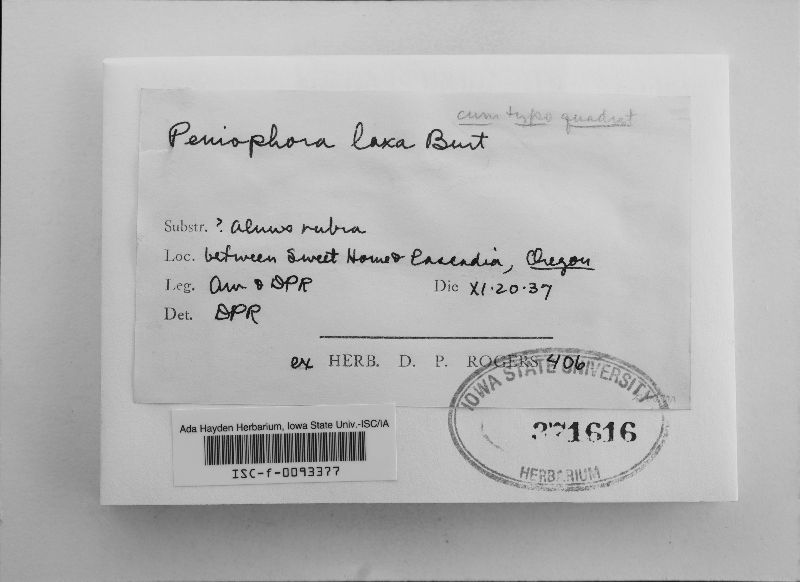 cum typo quadrat
Peniophora laxa Burt
Substr. ? Alnus rubra
Loc. between Sweet Home & Cascadia, Oregon
Leg. AM & DPR Die XI·20·37
Det. DPR
ex HERB. D. P. ROGERS 406
IOWA STATE UNIVERSITY
371616
HERBARIUM
Ada Hayden Herbarium, Iowa State Univ.-ISC/IA
ISC-f-0093377